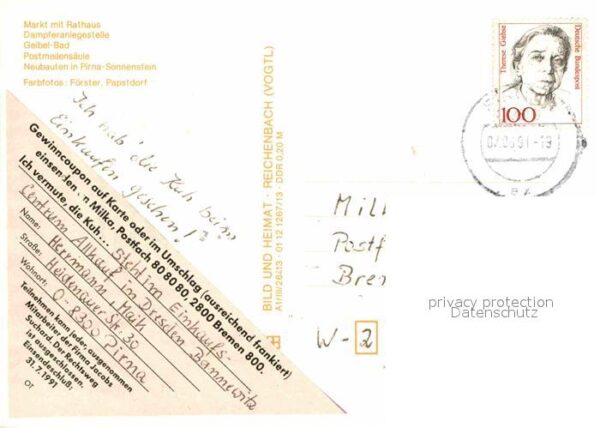 Markt mit Rathaus
Dampferanlegestelle
Geibel-Bad
Postmeilensäule
Neubauten in Pirna-Sonnenstein
Farbfotos: Förster, Papstdorf
Ich hab' die Kuh beim
Einkaufen gesehen!
Gewinncoupon auf Karte oder im Umschlag (ausreichend frankiert)
einsenden an Milka, Postfach 80 80 80, 2800 Bremen 800.
Ich vermute, die Kuh... steht im Einkaufs-
Centrum Allkauf in Dresden Bannewitz
Name: Herrmann, Maik
Straße: Heidenauer Str. 30
Wohnort: O-8300 Pirna
Teilnehmen kann jeder, ausgenommen
Mitarbeiter des Firma Jacobs
Suchard. Der Rechtsweg
ist ausgeschlossen.
Einsendeschluß:
31.7.1991
BILD UND HEIMAT · REICHENBACH (VOGTL)
A1/III/26/13 01 12 1267/13 · DDR 0,20 M
Therese Giehse
Deutsche Bundespost
100
Mil
Postf
Bre
W-2
privacy protection
Datenschutz